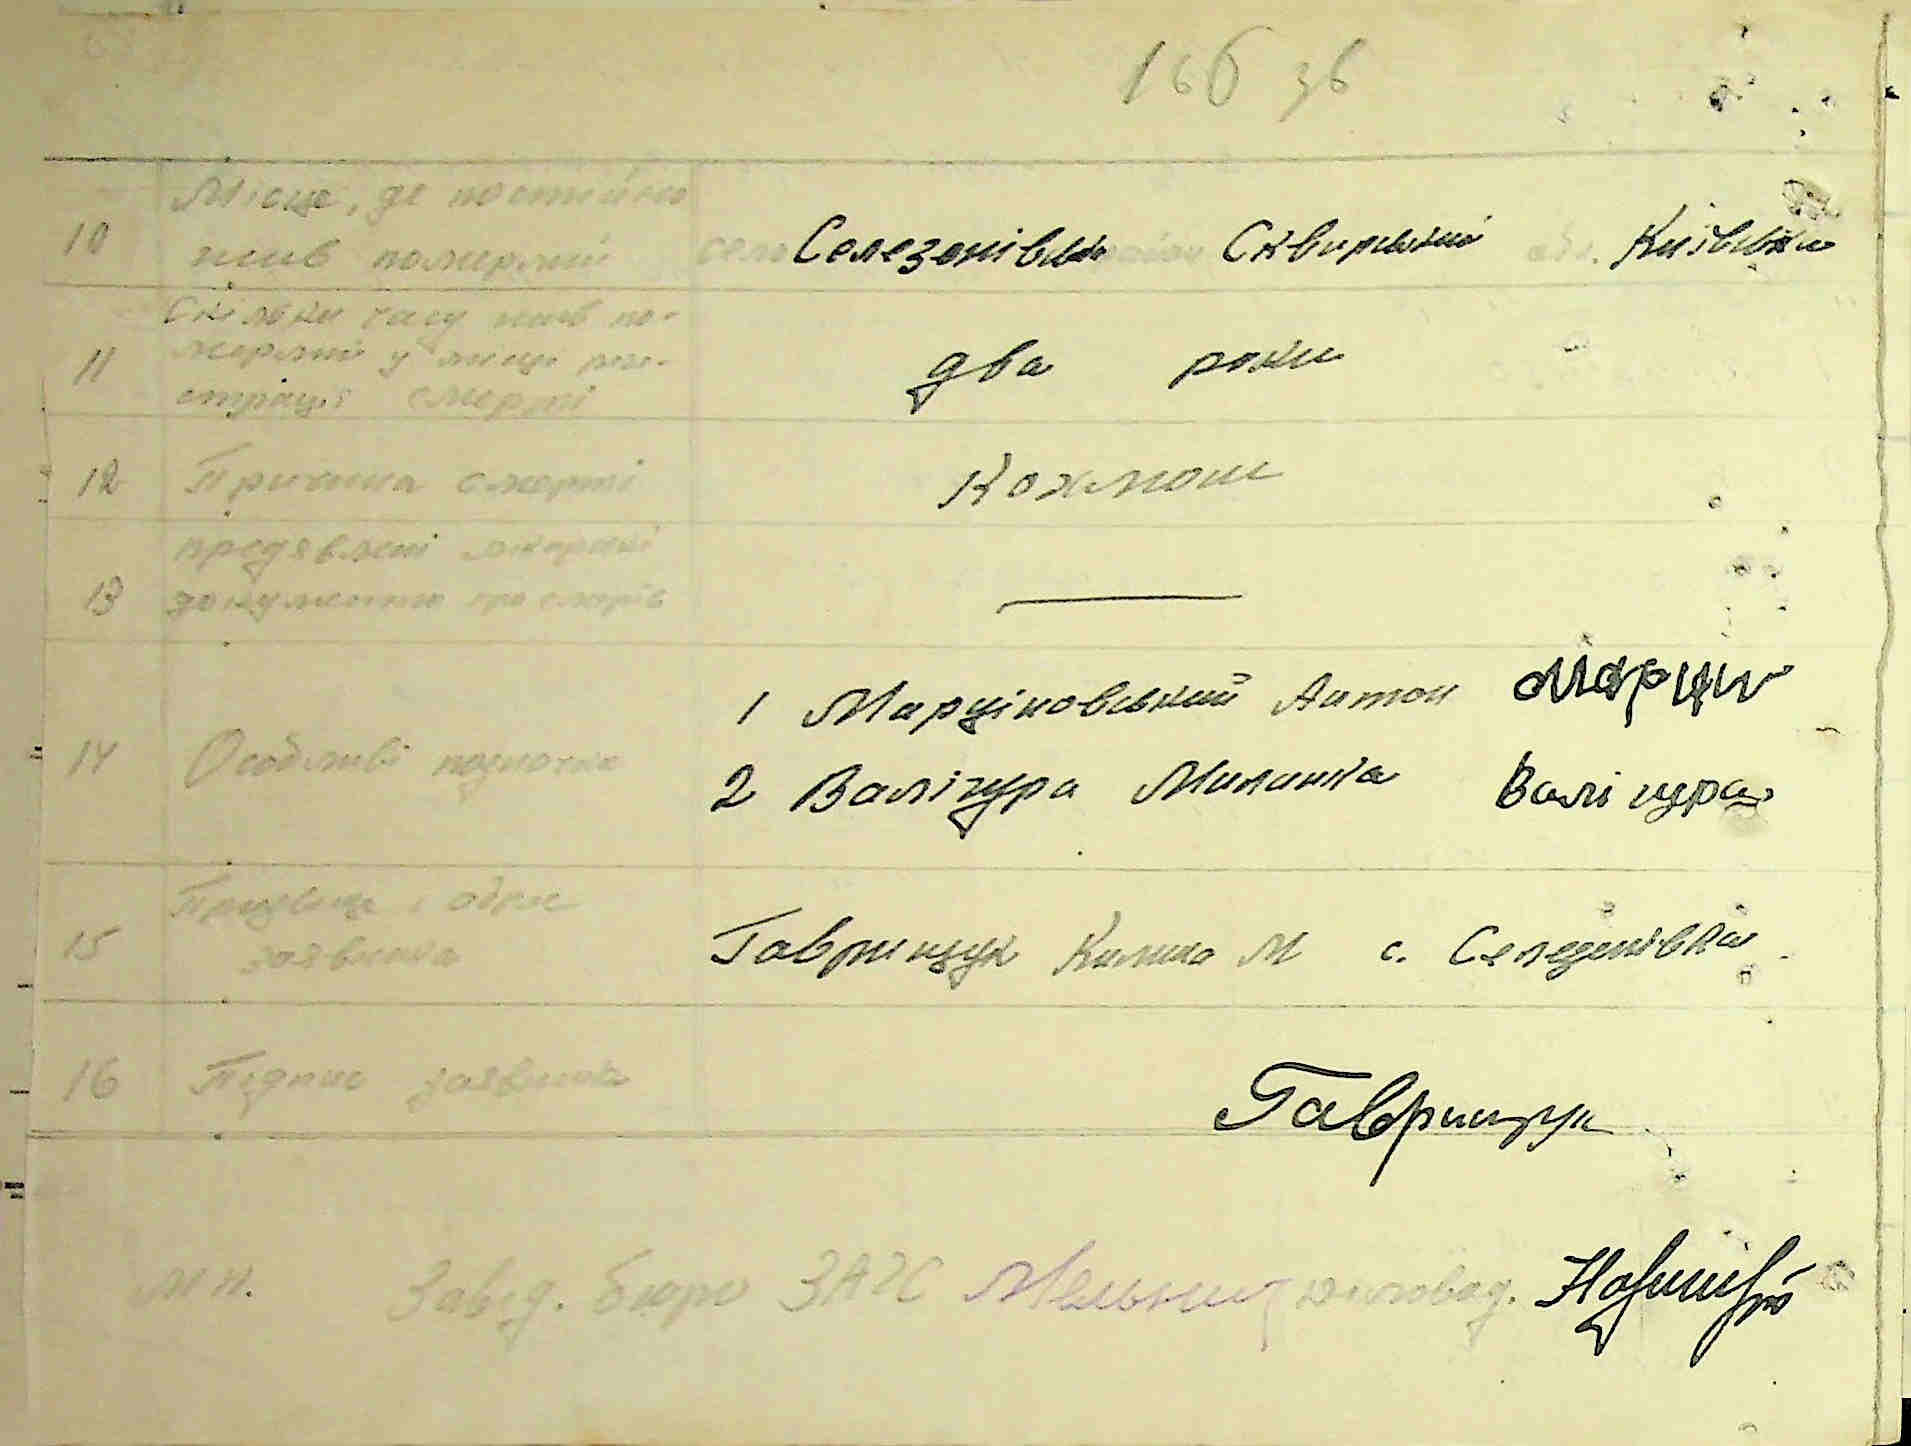 166 зв
10 Місце, де постійно
жив померлий село Селезенівка район Сквирський обл. Київська
Скільки часу жив по-
11 мерлий у місці реє-
страції смерті два роки
12 Причина смерті Коклюш
предявлені лікарські
13 документи про смерть —
14 Особливі позначки
1 Марціновський Антон Марцін
2 Валігура Миланка Валігура
15 Прізвище і адрес
заявника Гаврищук Килина М с. Селезенівка
16 Підпис заявника Гаврищук
М П. Завід. бюро ЗАГС Мельник діловод.